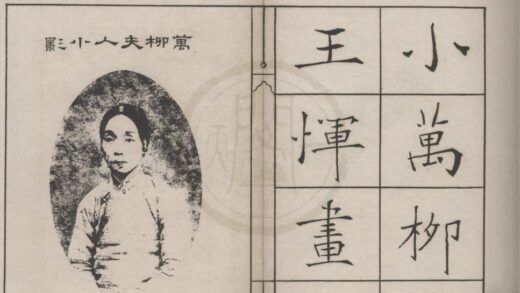 小萬柳
王惲畫
萬柳夫人小影